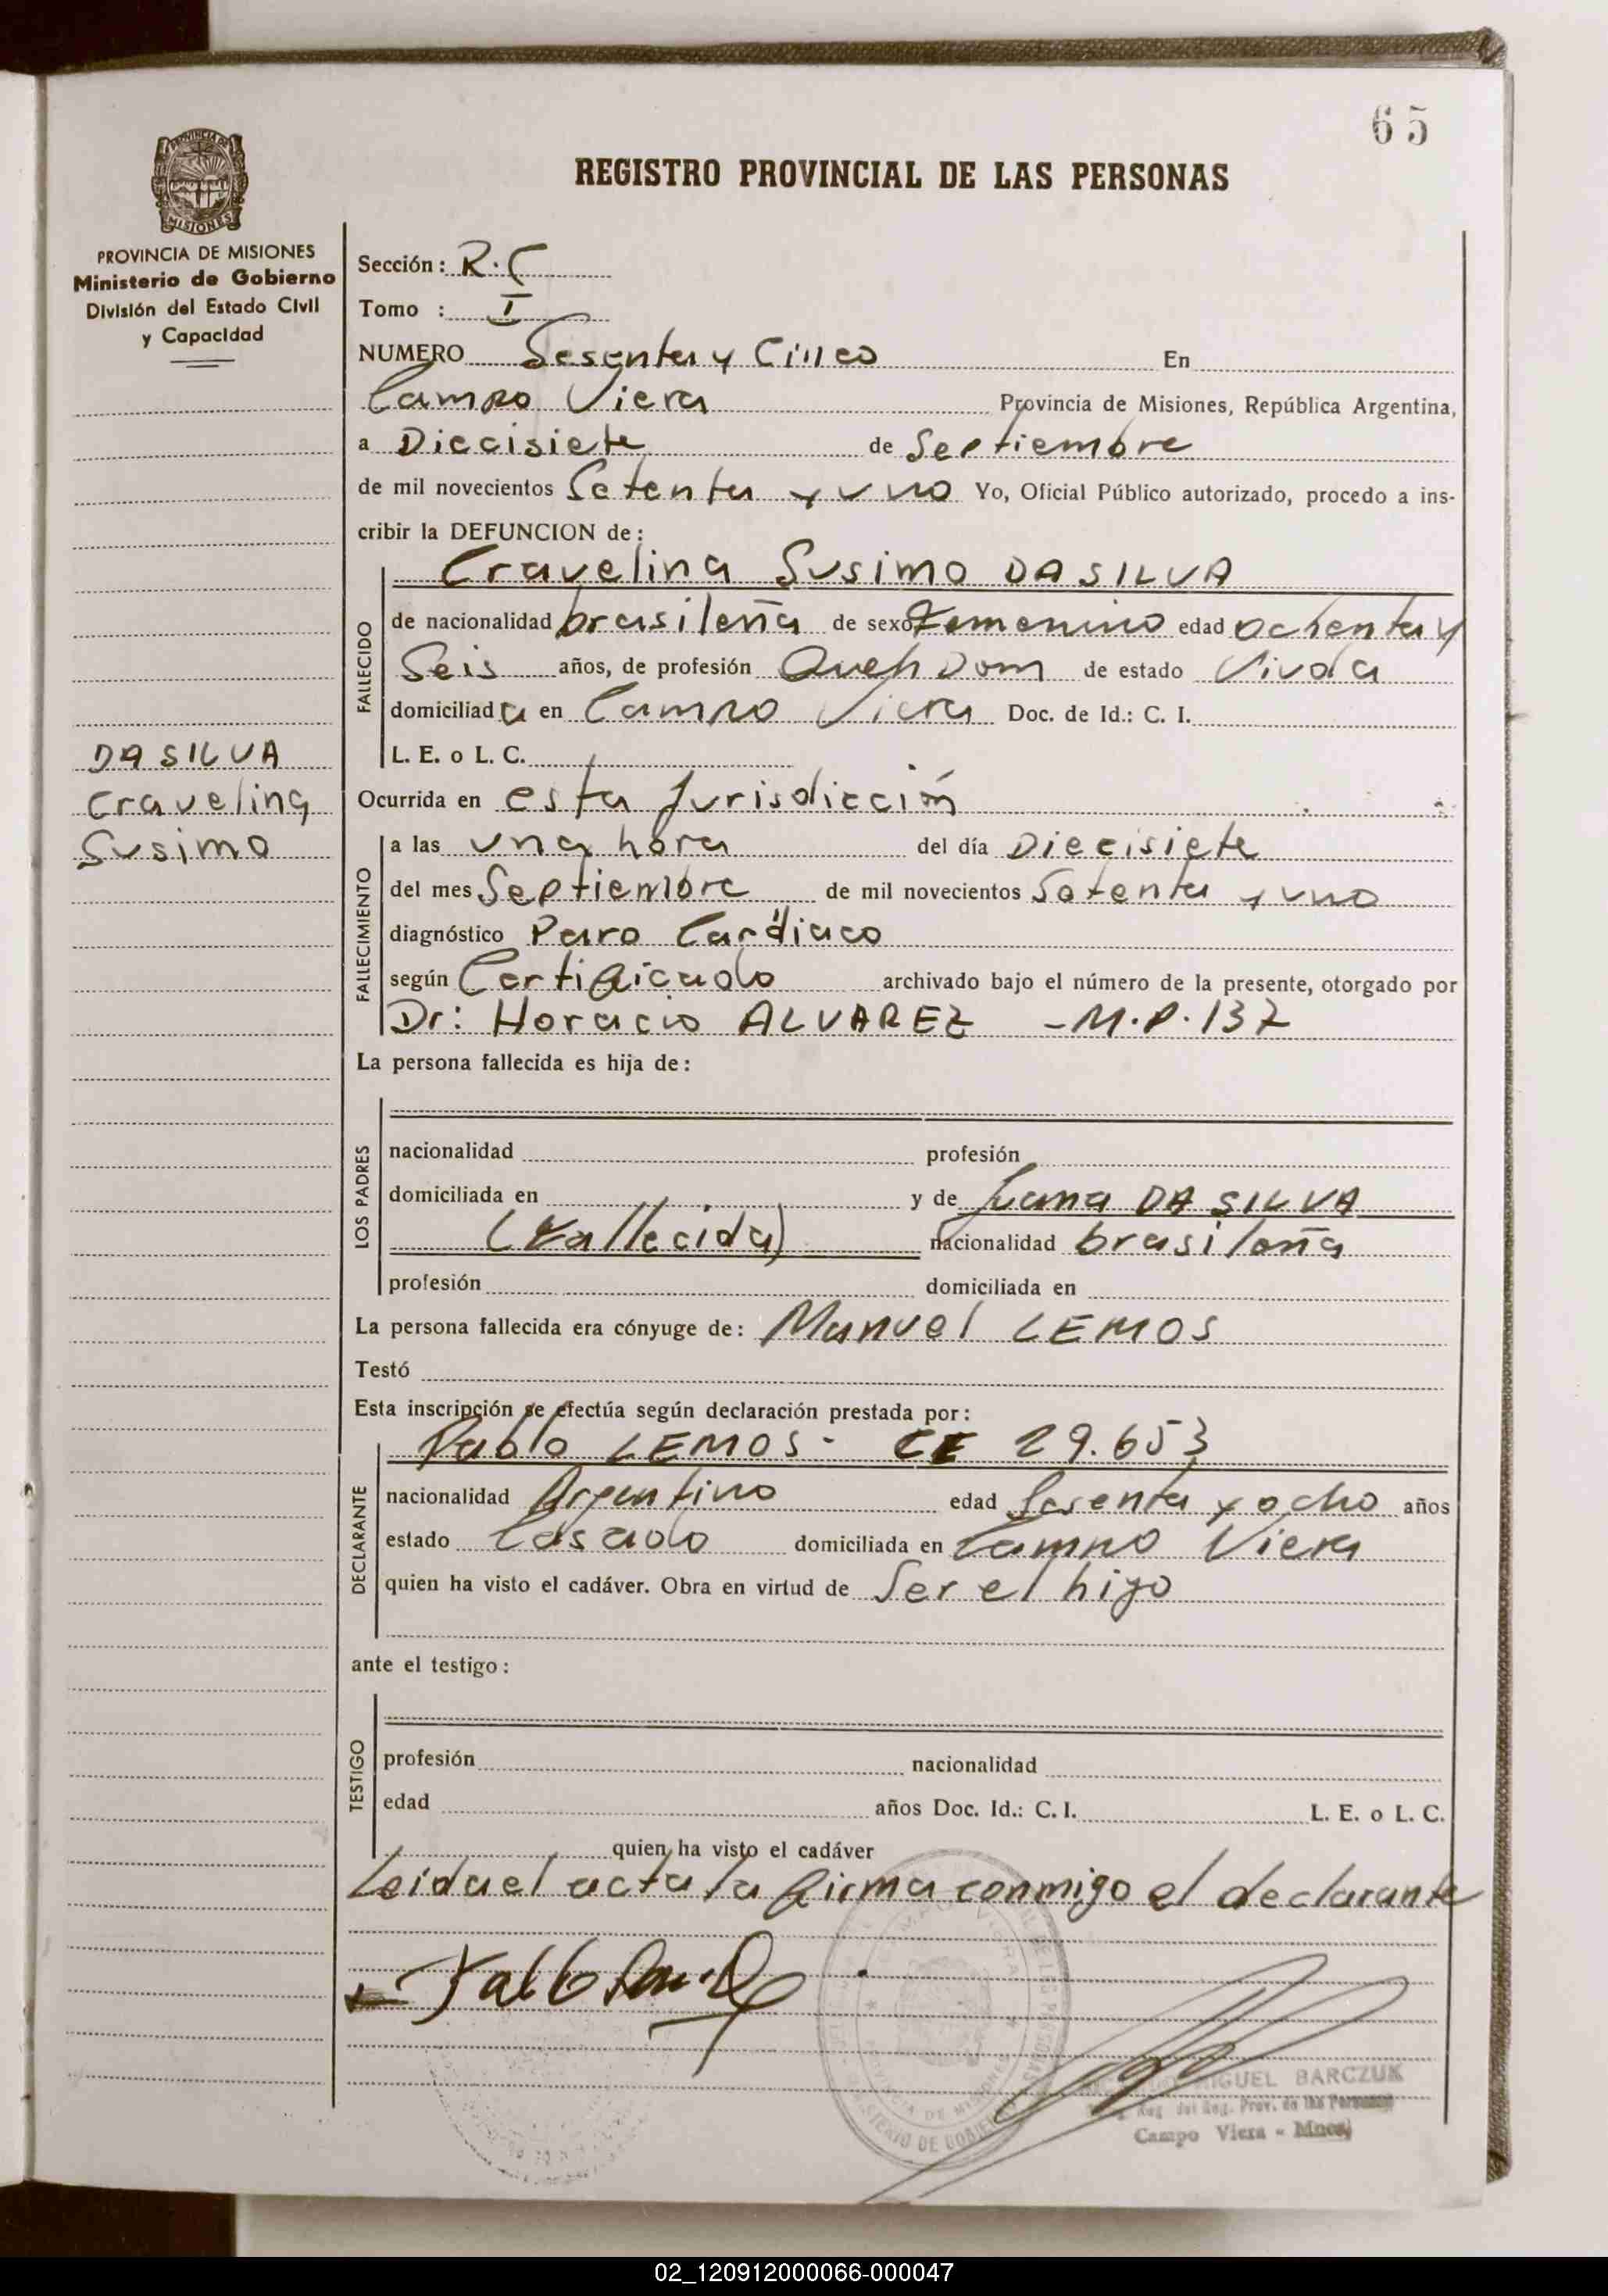 65
REGISTRO PROVINCIAL DE LAS PERSONAS
PROVINCIA DE MISIONES
MISIONES
PROVINCIA DE MISIONES
Ministerio de Gobierno
División del Estado Civil
y Capacidad
Sección: R.C
Tomo : I
NUMERO Sesenta y Cinco En
Campo Viera Provincia de Misiones, República Argentina,
a Diecisiete de Septiembre
de mil novecientos Setenta y uno Yo, Oficial Público autorizado, procedo a ins-
cribir la DEFUNCION de:
Cravelina Susimo DA SILVA
FALLECIDO
de nacionalidad brasileña de sexo Femenino edad ochenta y
Seis años, de profesión Queh Dom de estado Viuda
domiciliada en Campo Viera Doc. de Id.: C. I.
L. E. o L. C.
DA SILVA
Cravelina
Susimo
Ocurrida en esta Jurisdicción
FALLECIMIENTO
a las una hora del día Diecisiete
del mes Septiembre de mil novecientos Setenta y uno
diagnóstico Paro Cardiaco
según Certificado archivado bajo el número de la presente, otorgado por
Dr: Horacio ALVAREZ - M.P. 137
La persona fallecida es hija de:
LOS PADRES
nacionalidad profesión
domiciliada en y de Juana DA SILVA
(Fallecida) nacionalidad brasileña
profesión domiciliada en
La persona fallecida era cónyuge de: Manuel LEMOS
Testó
Esta inscripción se efectúa según declaración prestada por:
Pablo LEMOS- CE 29.653
DECLARANTE
nacionalidad Argentino edad Sesenta y ocho años
estado Casado domiciliada en Campo Viera
quien ha visto el cadáver. Obra en virtud de Ser el higo
ante el testigo:
TESTIGO
profesión nacionalidad
edad años Doc. Id.: C. I. L. E. o L. C.
quien ha visto el cadáver
Leida el acta la firma conmigo el declarante
Pablo
MIGUEL BARCZUK
Reg. del Reg. Prov. de las Personas
Campo Viera - Mnes.
02_120912000066-000047